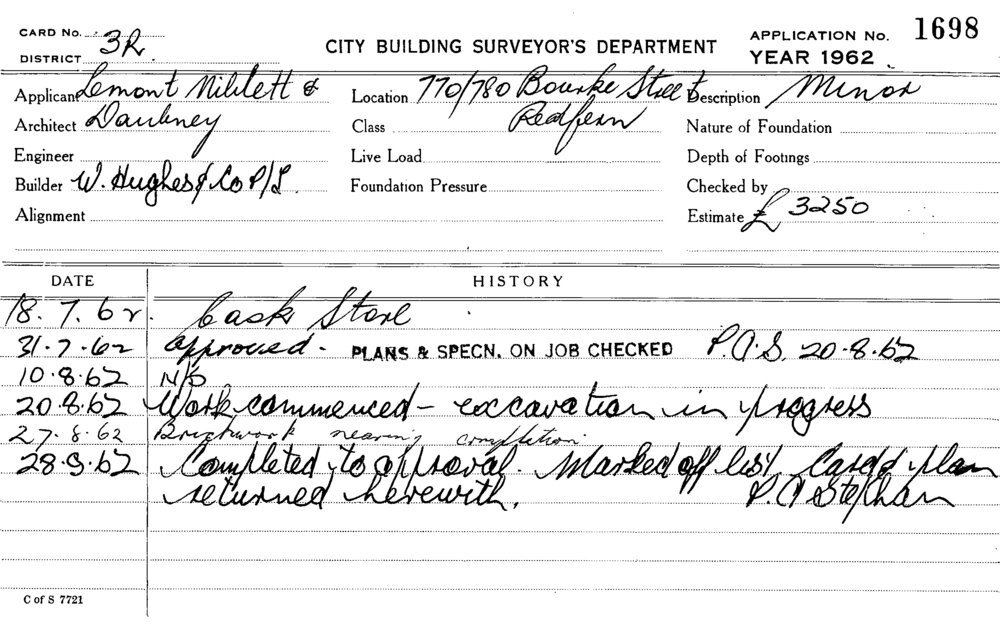 CARD No. 3R
DISTRICT
CITY BUILDING SURVEYOR'S DEPARTMENT
APPLICATION No. 1698
YEAR 1962
Applicant Lemont Niblett &
Location 770/780 Bourke Street
Description Minor
Architect Daubney
Class Redfern
Nature of Foundation
Engineer
Live Load
Depth of Footings
Builder W. Hughes & Co P/L.
Foundation Pressure
Checked by
Alignment
Estimate £ 3250
DATE HISTORY
18.7.62. Cask Store
31.7.62 approved - PLANS & SPECN. ON JOB CHECKED P.A.S. 20-8.62
10.8.62 N/S
20.8.62 Work commenced - excavation in progress
27.8.62 Brickwork nearing completion.
28.9.62 Completed to approval. Marked off list, Card & plan
returned herewith. P.A Stephan
C of S 7721